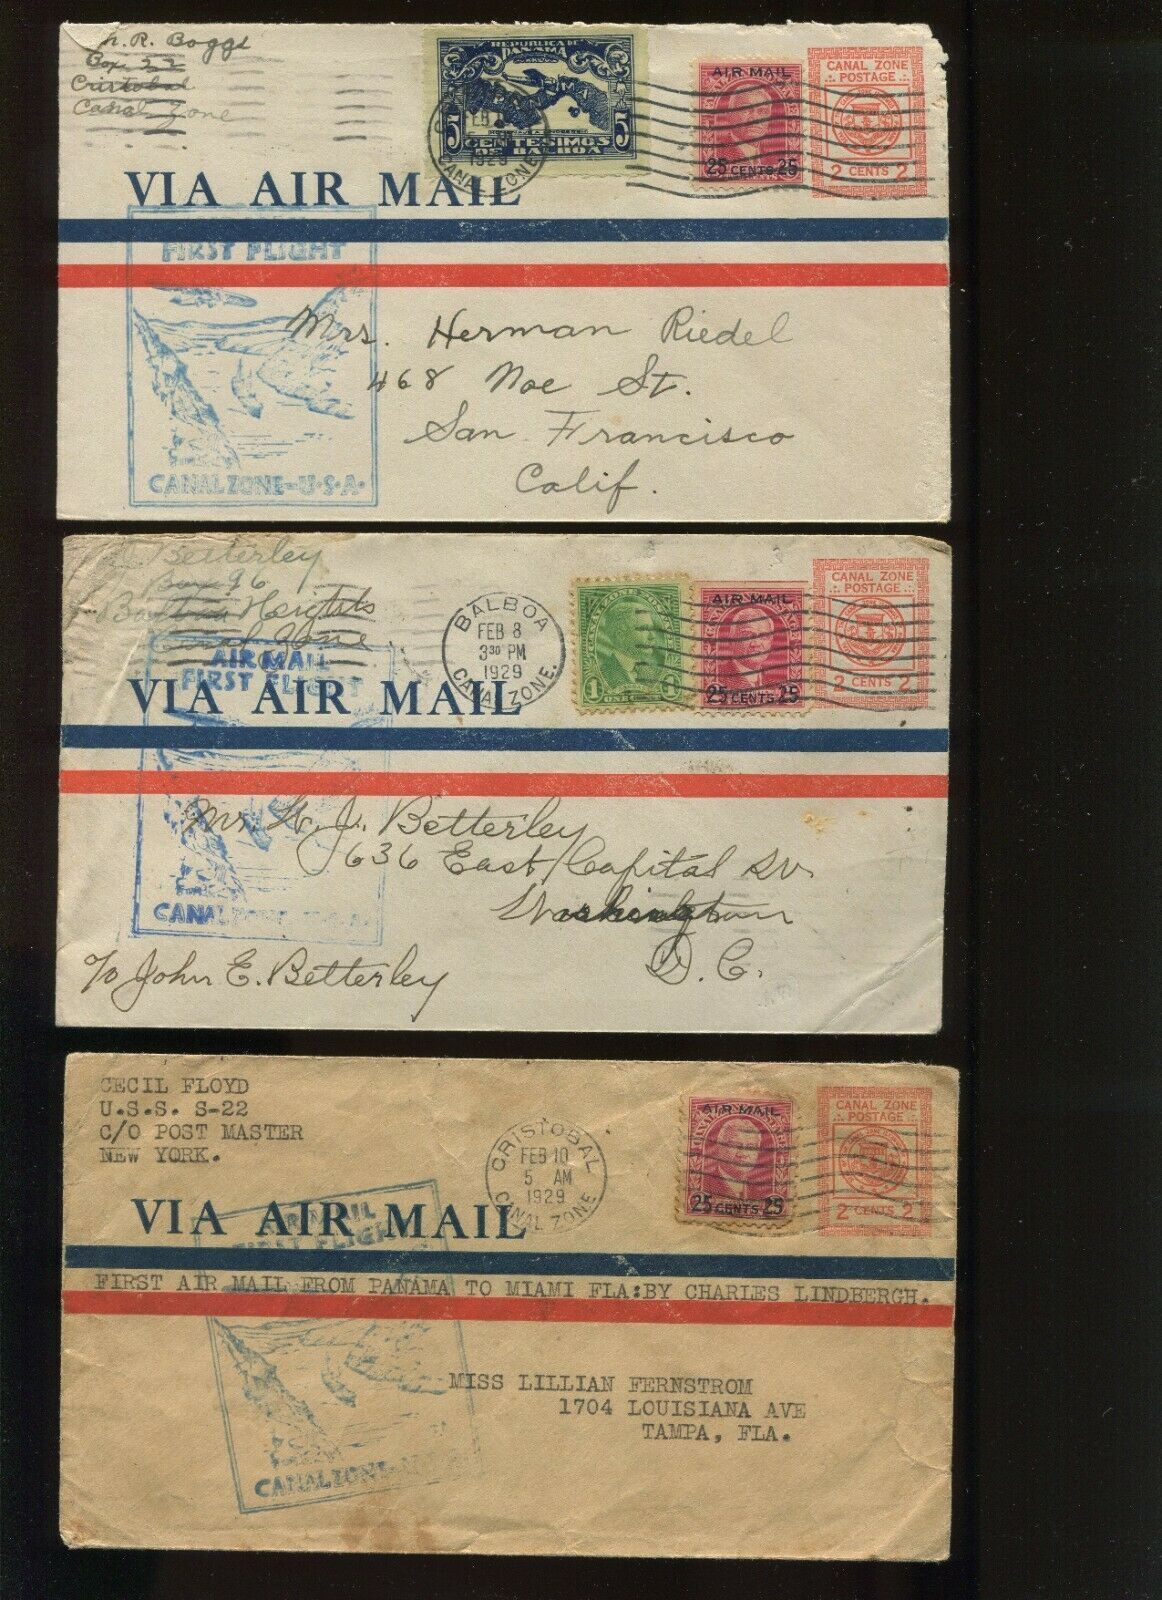 R. Boggs
Box 22
Cristobal
Canal Zone
REPUBLICA DE
PANAMA
5 5
CENTESIMOS
DE BALBOA
FEB
1929
CANAL ZONE
AIR MAIL
25 CENTS 25
CANAL ZONE
POSTAGE
2 CENTS 2
VIA AIR MAIL
FIRST FLIGHT
CANAL ZONE-U.S.A.
Mrs. Herman Riedel
468 Noe St.
San Francisco
Calif.
Betterley
Box 96
Balboa Heights
Canal Zone
BALBOA
FEB 8
3 30 PM
1929
CANAL ZONE.
1 1
AIR MAIL
25 CENTS 25
CANAL ZONE
POSTAGE
2 CENTS 2
AIR MAIL
FIRST FLIGHT
VIA AIR MAIL
CANAL ZONE
Mr. H. J. Betterley
636 East Capital
Washington
D. C.
% John E. Betterley
CECIL FLOYD
U.S.S. S-22
C/O POST MASTER
NEW YORK.
CRISTOBAL
FEB 10
5 AM
1929
CANAL ZONE
AIR MAIL
25 CENTS 25
CANAL ZONE
POSTAGE
2 CENTS 2
VIA AIR MAIL
AIR MAIL
FIRST FLIGHT
FIRST AIR MAIL FROM PANAMA TO MIAMI FLA:BY CHARLES LINDBERGH.
CANAL ZONE
MISS LILLIAN FERNSTROM
1704 LOUISIANA AVE
TAMPA, FLA.